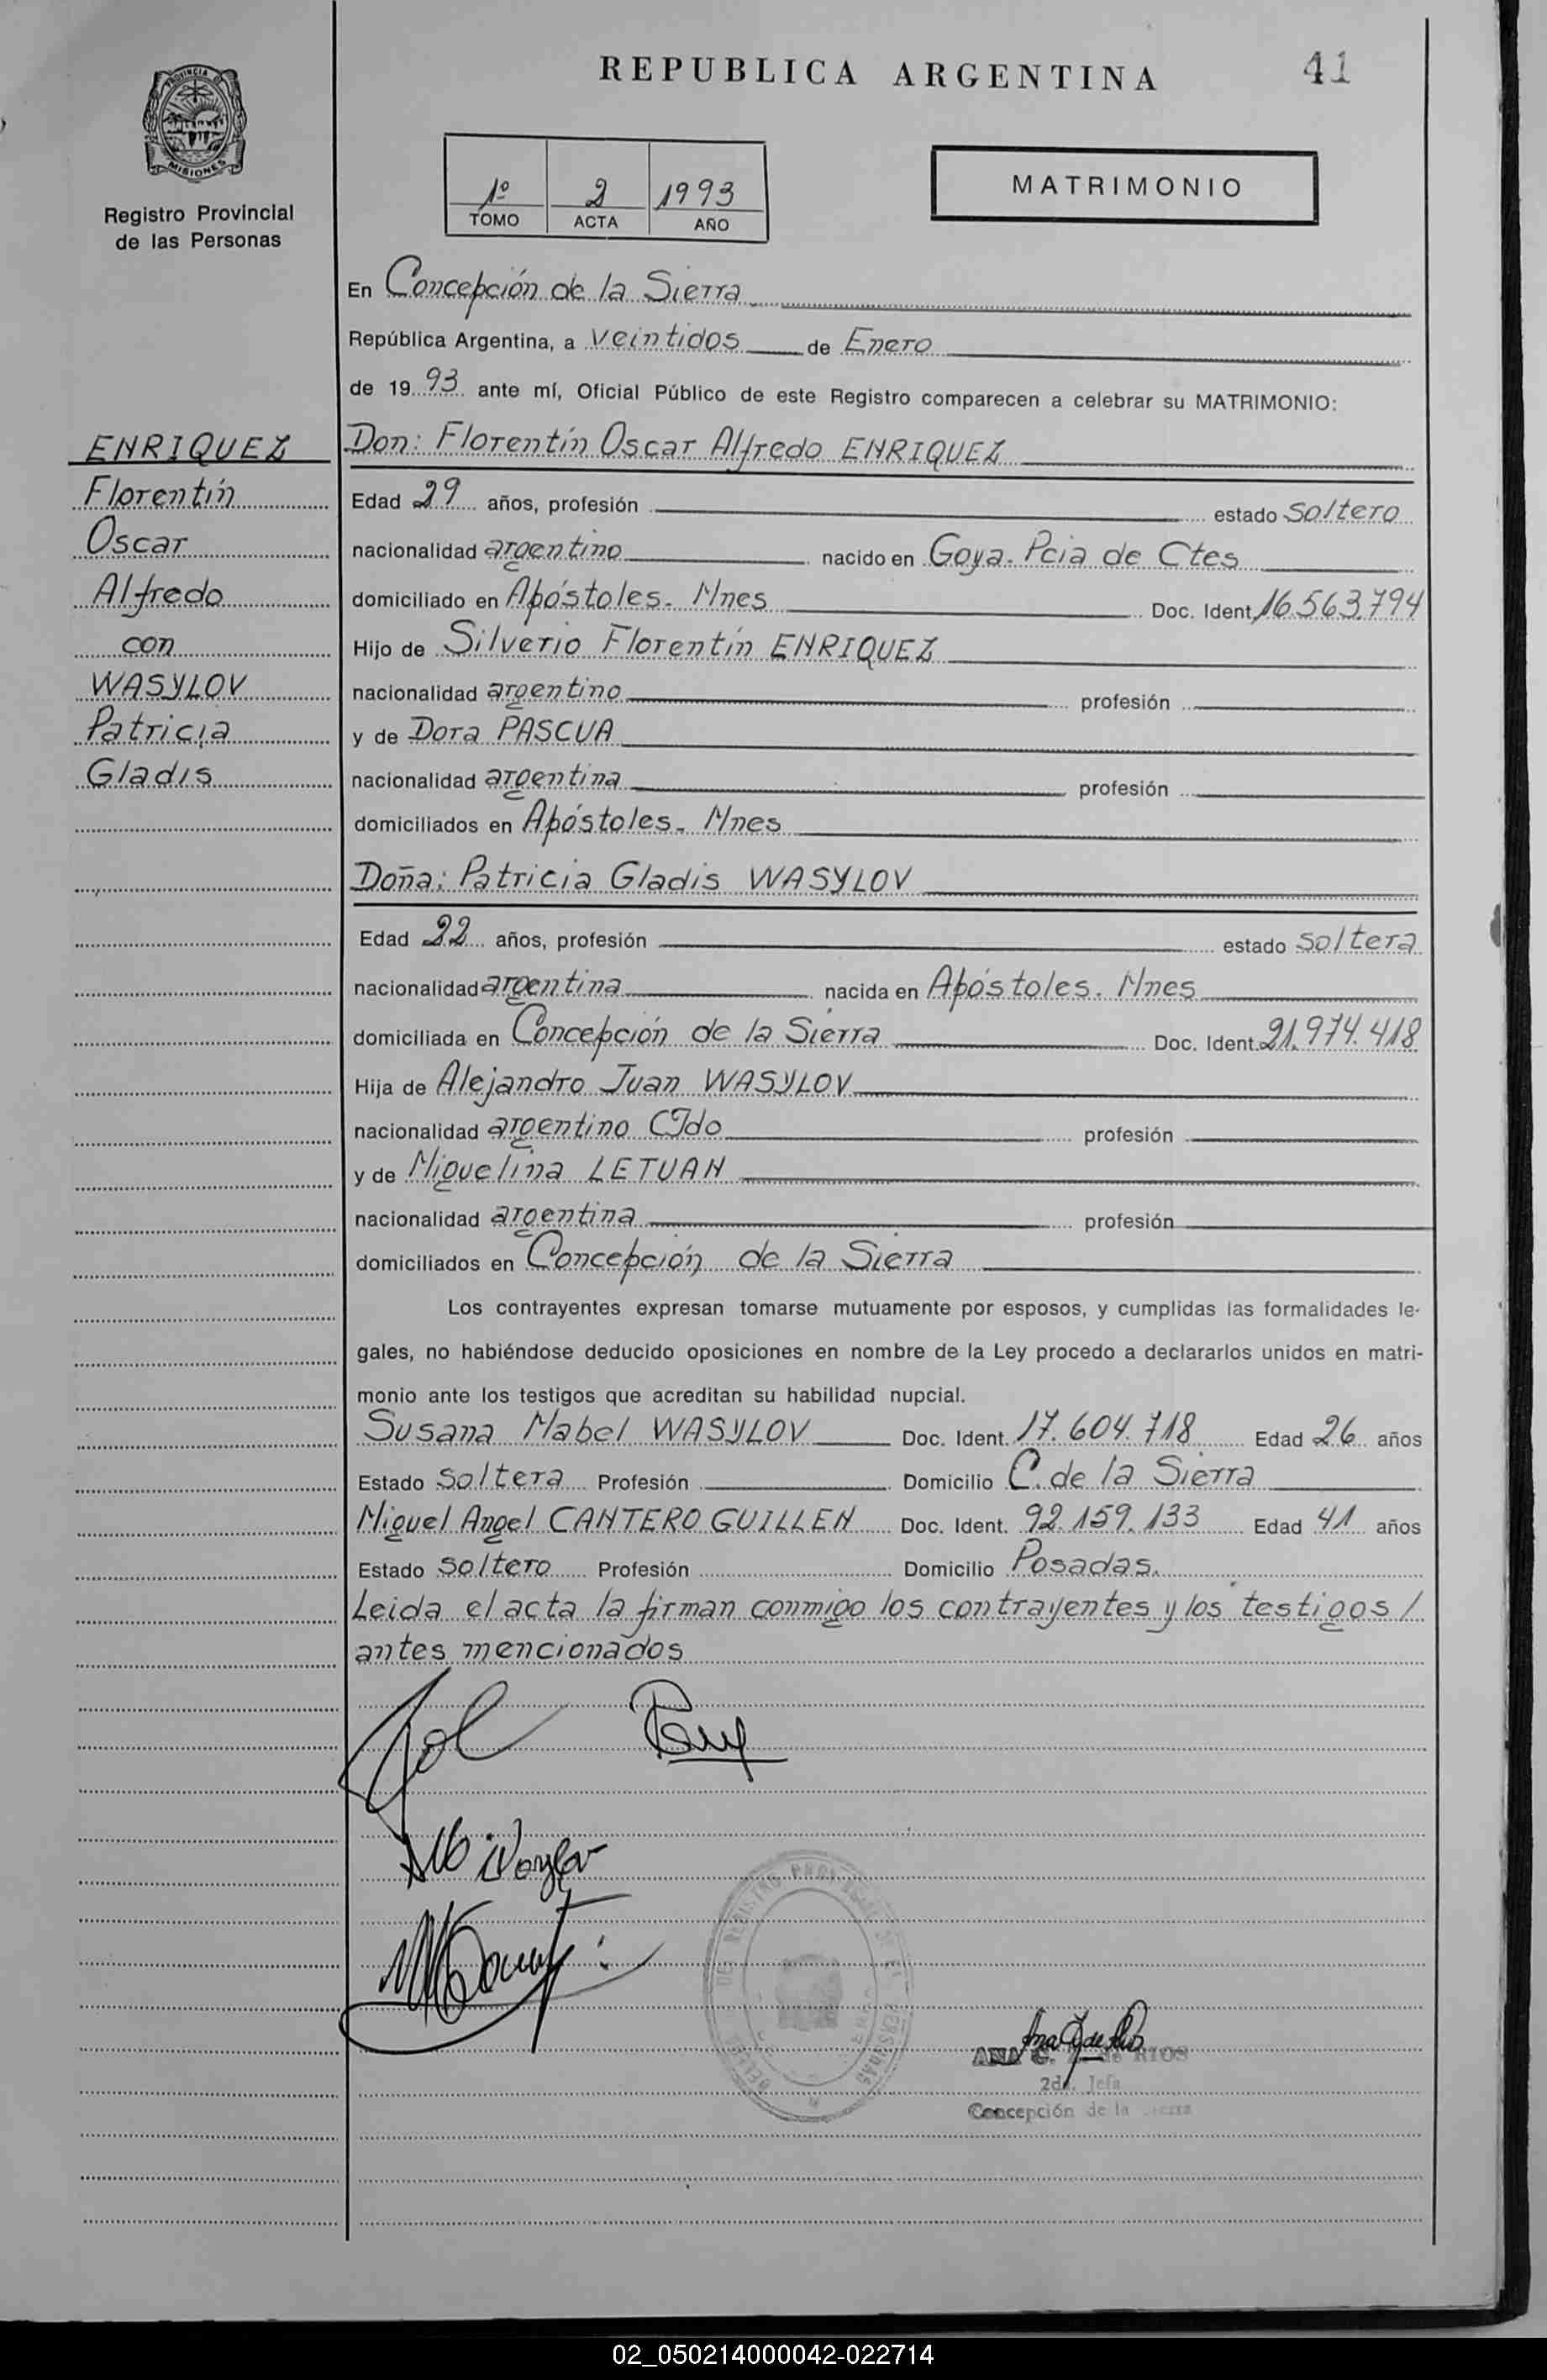 REPUBLICA ARGENTINA
41
PROVINCIA DE
MISIONES
Registro Provincial
de las Personas
1º 2 1993
TOMO ACTA AÑO
MATRIMONIO
En Concepción de la Sierra
República Argentina, a veintidos de Enero
de 19 93 ante mí, Oficial Público de este Registro comparecen a celebrar su MATRIMONIO:
ENRIQUEZ
Florentín
Oscar
Alfredo
con
WASYLOV
Patricia
Gladis
Don: Florentín Oscar Alfredo ENRIQUEZ
Edad 29 años, profesión estado soltero
nacionalidad argentino nacido en Goya. Pcia de Ctes
domiciliado en Apóstoles. Mnes Doc. Ident. 16.563.794
Hijo de Silverio Florentín ENRIQUEZ
nacionalidad argentino profesión
y de Dora PASCUA
nacionalidad argentina profesión
domiciliados en Apóstoles. Mnes
Doña: Patricia Gladis WASYLOV
Edad 22 años, profesión estado soltera
nacionalidad argentina nacida en Apóstoles. Mnes
domiciliada en Concepción de la Sierra Doc. Ident. 21.974.418
Hija de Alejandro Juan WASYLOV
nacionalidad argentino profesión
y de Miguelina LETUAN
nacionalidad argentina profesión
domiciliados en Concepción de la Sierra
Los contrayentes expresan tomarse mutuamente por esposos, y cumplidas las formalidades le-
gales, no habiéndose deducido oposiciones en nombre de la Ley procedo a declararlos unidos en matri-
monio ante los testigos que acreditan su habilidad nupcial.
Susana Mabel WASYLOV Doc. Ident. 17.604.718 Edad 26 años
Estado soltera Profesión Domicilio C. de la Sierra
Miguel Angel CANTERO GUILLEN Doc. Ident. 92.159.133 Edad 41 años
Estado soltero Profesión Domicilio Posadas.
Leida el acta la firman conmigo los contrayentes y los testigos /
antes mencionados
ANA G. de RIOS
2da. Jefa
Concepción de la Sierra
02_050214000042-022714